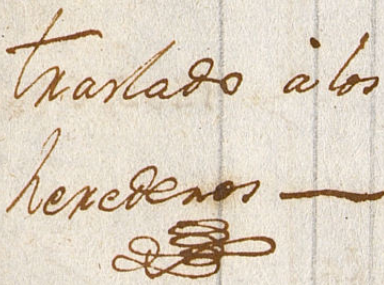 traslado à los
herederos —